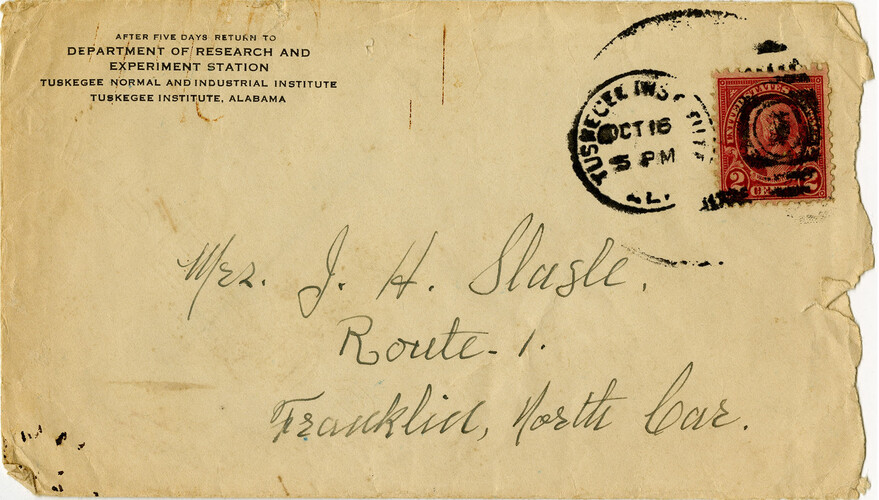 AFTER FIVE DAYS RETURN TO
DEPARTMENT OF RESEARCH AND
EXPERIMENT STATION
TUSKEGEE NORMAL AND INDUSTRIAL INSTITUTE
TUSKEGEE INSTITUTE, ALABAMA
TUSKEGEE INSTITUTE
OCT 16
5 PM
AL.
UNITED STATES
2 CENTS 2
Mrs. J. H. Slagle,
Route-1.
Franklin, North Car.